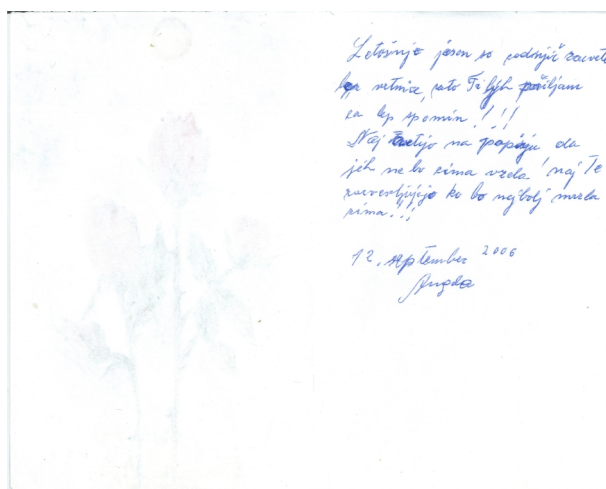 Letošnjo jesen so zadnjič zacvetele
vrtnice, zato Ti jih pošiljam
za lep spomin !!!
Naj cvetijo na papirju da
jih ne bo zima vzela! naj Te
razveseljujejo ko bo najbolj mrzla
zima!!!
12. september 2006
Angela